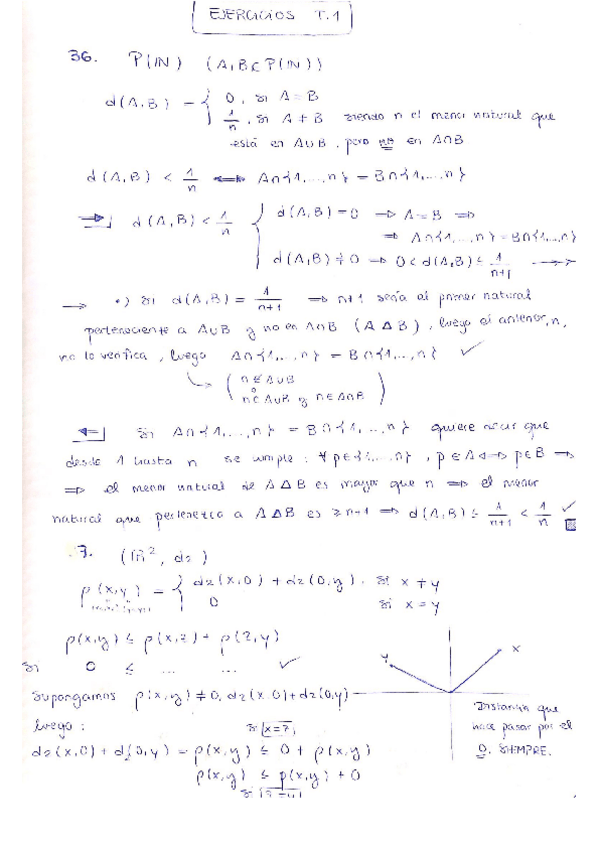 EJERCICIOS T.1
36. P(IN) (A,B ⊂ P(IN))
d(A,B) = { 0, si A=B
1/n, si A ≠ B siendo n el menor natural que
está en A∪B, pero no en A∩B
d(A,B) < 1/n ⟺ A∩{1,...,n} = B∩{1,...,n}
⇒] d(A,B) < 1/n { d(A,B)=0 → A=B ⇒
⇒ A∩{1,...,n} = B∩{1,...,n}
d(A,B) ≠ 0 → 0 < d(A,B) ≤ 1/n+1 →
→ •) Si d(A,B) = 1/n+1 ⇒ n+1 sería el primer natural
perteneciente a A∪B y no en A∩B (A Δ B), luego el anterior, n,
no lo verifica, luego A∩{1,...,n} = B∩{1,...,n} ✓
( n ∉ A∪B
o
n ∈ A∪B y n ∈ A∩B )
⇐] Si A∩{1,...,n} = B∩{1,...,n} quiere decir que
desde 1 hasta n se cumple: ∀p∈{1,...,n}, p∈A ⟺ p∈B ⇒
⇒ el menor natural de A Δ B es mayor que n ⇒ el menor
natural que pertenezca a A Δ B es ≥ n+1 ⇒ d(A,B) ≤ 1/n+1 < 1/n ✓
7. (IR², d2)
ρ(x,y) = { d2(x,0) + d2(0,y), si x ≠ y
0 si x = y
ρ(x,y) ≤ ρ(x,z) + ρ(z,y)
Si 0 ≤ ... ... ✓
y x
Supongamos ρ(x,y) ≠ 0, d2(x,0)+d2(0,y)
Distancia que
luego:
hace pasar por el
si x=z
0. SIEMPRE.
d2(x,0) + d2(0,y) = ρ(x,y) ≤ 0 + ρ(x,y)
ρ(x,y) ≤ ρ(x,y) + 0
si z=y